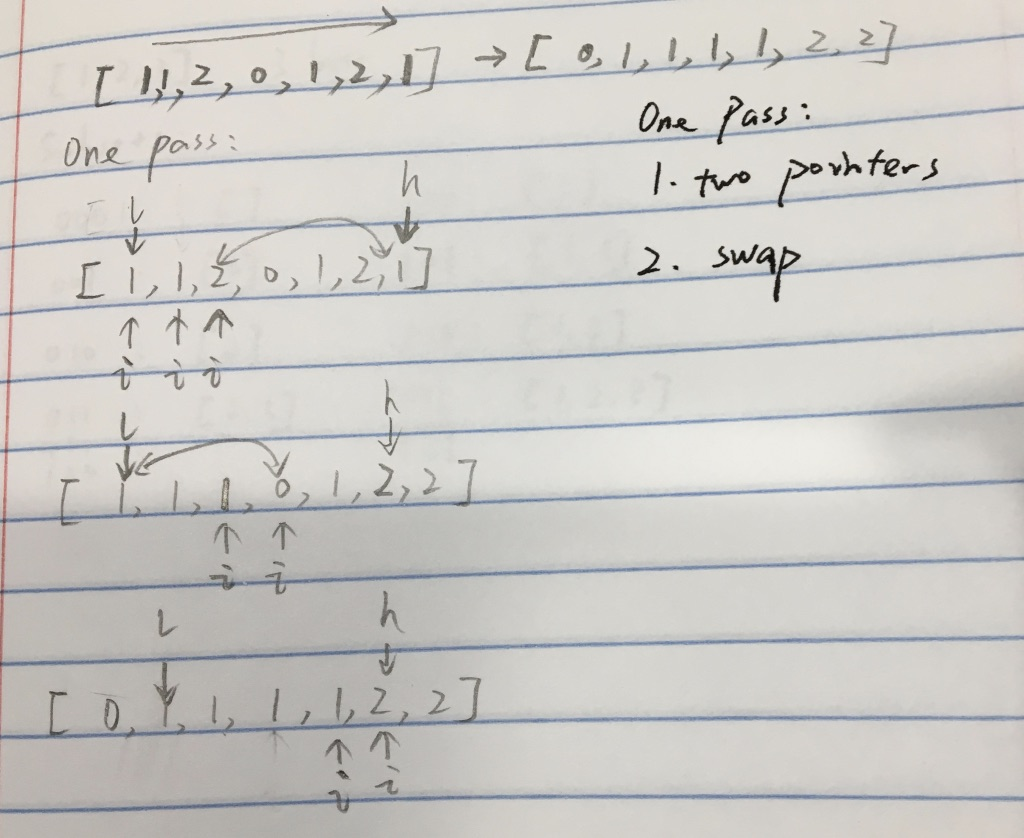 [ 1, 1, 2, 0, 1, 2, 1 ] → [ 0, 1, 1, 1, 1, 2, 2 ]
One pass:
One Pass:
1. two pointers
2. swap
l h
[ 1, 1, 2, 0, 1, 2, 1 ]
i i i
l h
[ 1, 1, 1, 0, 1, 2, 2 ]
i i
l h
[ 0, 1, 1, 1, 1, 2, 2 ]
i i